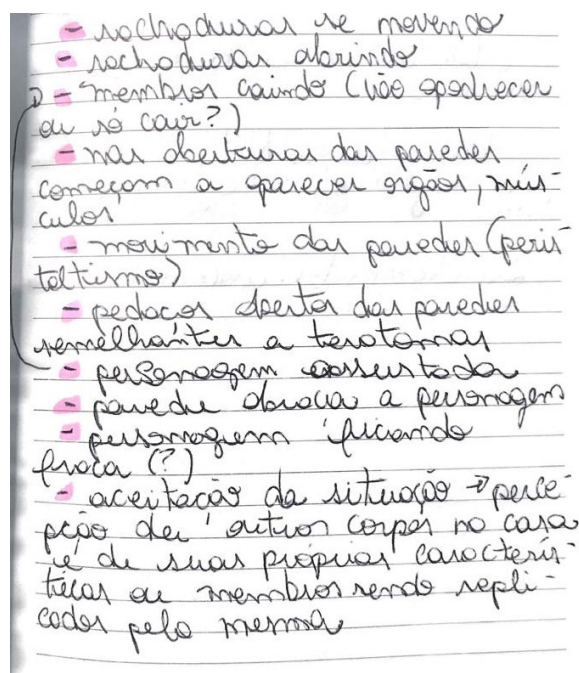 - rachaduras se movendo
- rachaduras abrindo
- membros caindo (vão apodrecer
ou só cair?)
- nas aberturas das paredes
começam a aparecer orgãos, mús-
culos
- movimento das paredes (peris-
taltismo)
- pedaços abertos das paredes
semelhantes a teratomas
- personagem assustada
- parede abraça a personagem
- personagem ficando
fraca (?)
- aceitação da situação → perce-
pção de outros corpos na casa
e de suas próprias caracterís-
ticas ou membros sendo repli-
cados pela mesma